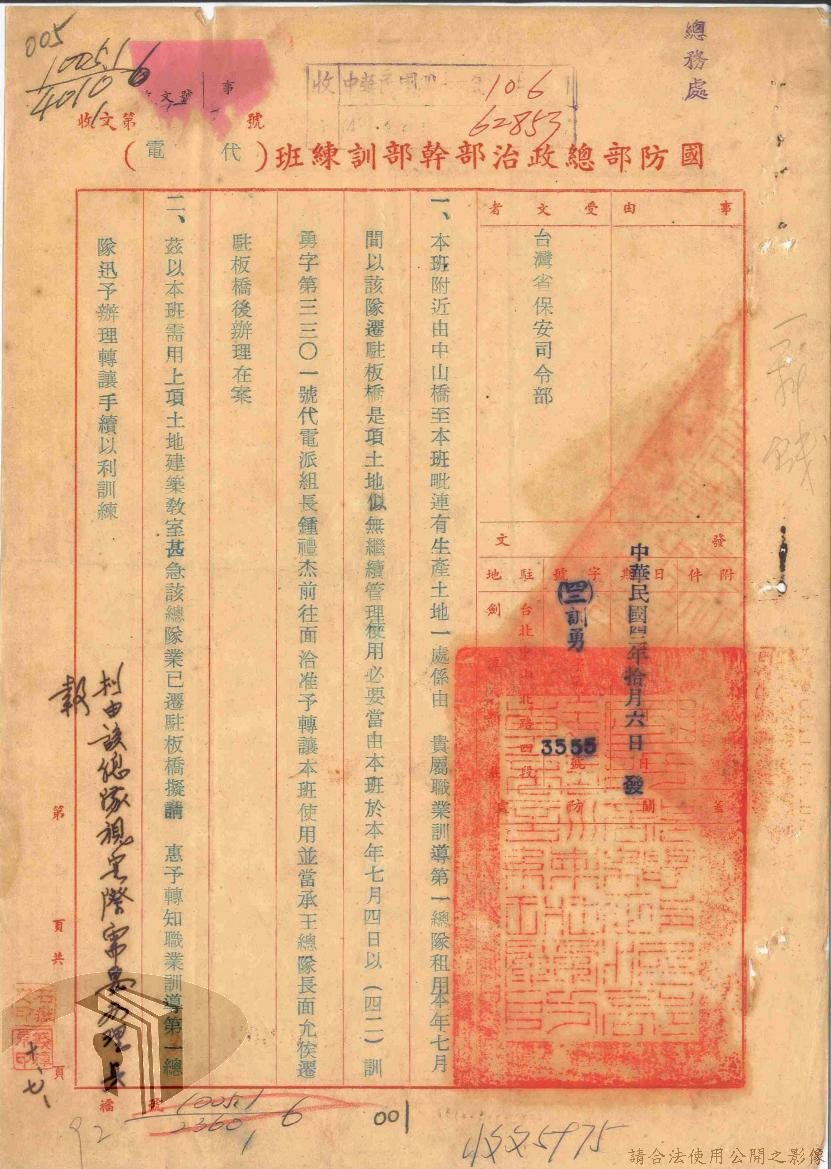 總務處
005
1005.1
4010
6
1
收文第 號
事
收 中華民國
10.6
62853
國防部總政治部幹部訓練班(代電)
事由
受文者
台灣省保安司令部
附件
發文
日期
字號
駐地
中華民國四二年拾月六日 發
(四二)訓勇
3555
台北中山北路四段
蓋關防處
一、本班附近由中山橋至本班毗連有生產土地一處係由 貴屬職業訓導第一總隊租用本年七月
間以該隊遷駐板橋是項土地似無繼續管理使用必要當由本班於本年七月四日以(四二)訓
勇字第三三〇一號代電派組長鍾禮杰前往面洽准予轉讓本班使用並當承王總隊長面允俟遷
駐板橋後辦理在案
二、茲以本班需用上項土地建築教室甚急該總隊業已遷駐板橋擬請 惠予轉知職業訓導第一總
隊迅予辦理轉讓手續以利訓練
該總隊視實際需要辦理具
報
十、七、
第 頁共 頁
檔號
1005.1
2360
6
1
001
92
收文5975
請合法使用公開之影像